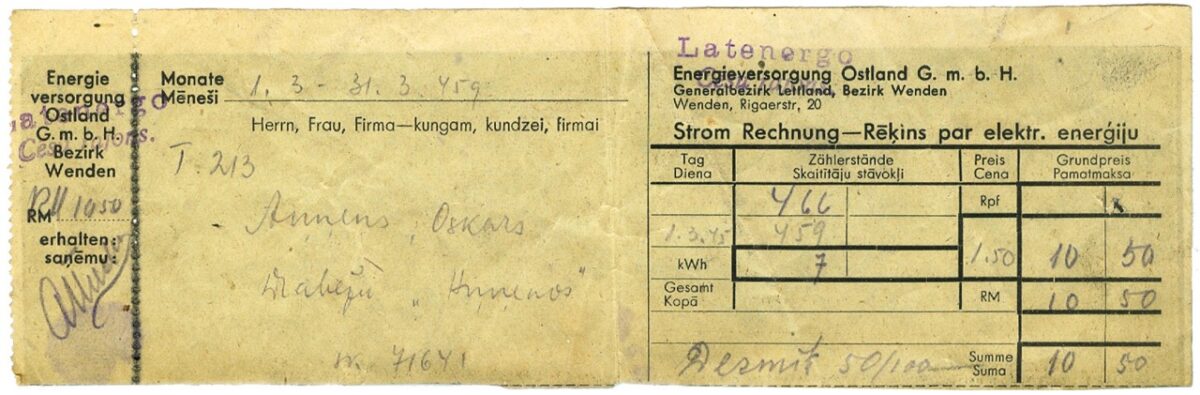 Energie
versorgung
Ostland
G. m. b. H.
Bezirk
Wenden
Latenergo
Cēsu rajons.
RM 1050
erhalten:
saņēmu:
Monate
Mēneši 1. 3 - 31. 3. 459
Herrn, Frau, Firma—kungam, kundzei, firmai
T. 213
Oskars
71641
Latenergo
Energieversorgung Ostland G. m. b. H.
Generalbezirk Lettland, Bezirk Wenden
Wenden, Rigaerstr, 20
Strom Rechnung—Rēķins par elektr. enerģiju
Tag Zählerstände Preis Grundpreis
Diena Skaitītāju stāvokļi Cena Pamatmaksa
466 Rpf
1.3.45 459
kWh 7 1.50 10 50
Gesamt
Kopā RM 10 50
Desmit 50/100 Summe 10 50
Suma